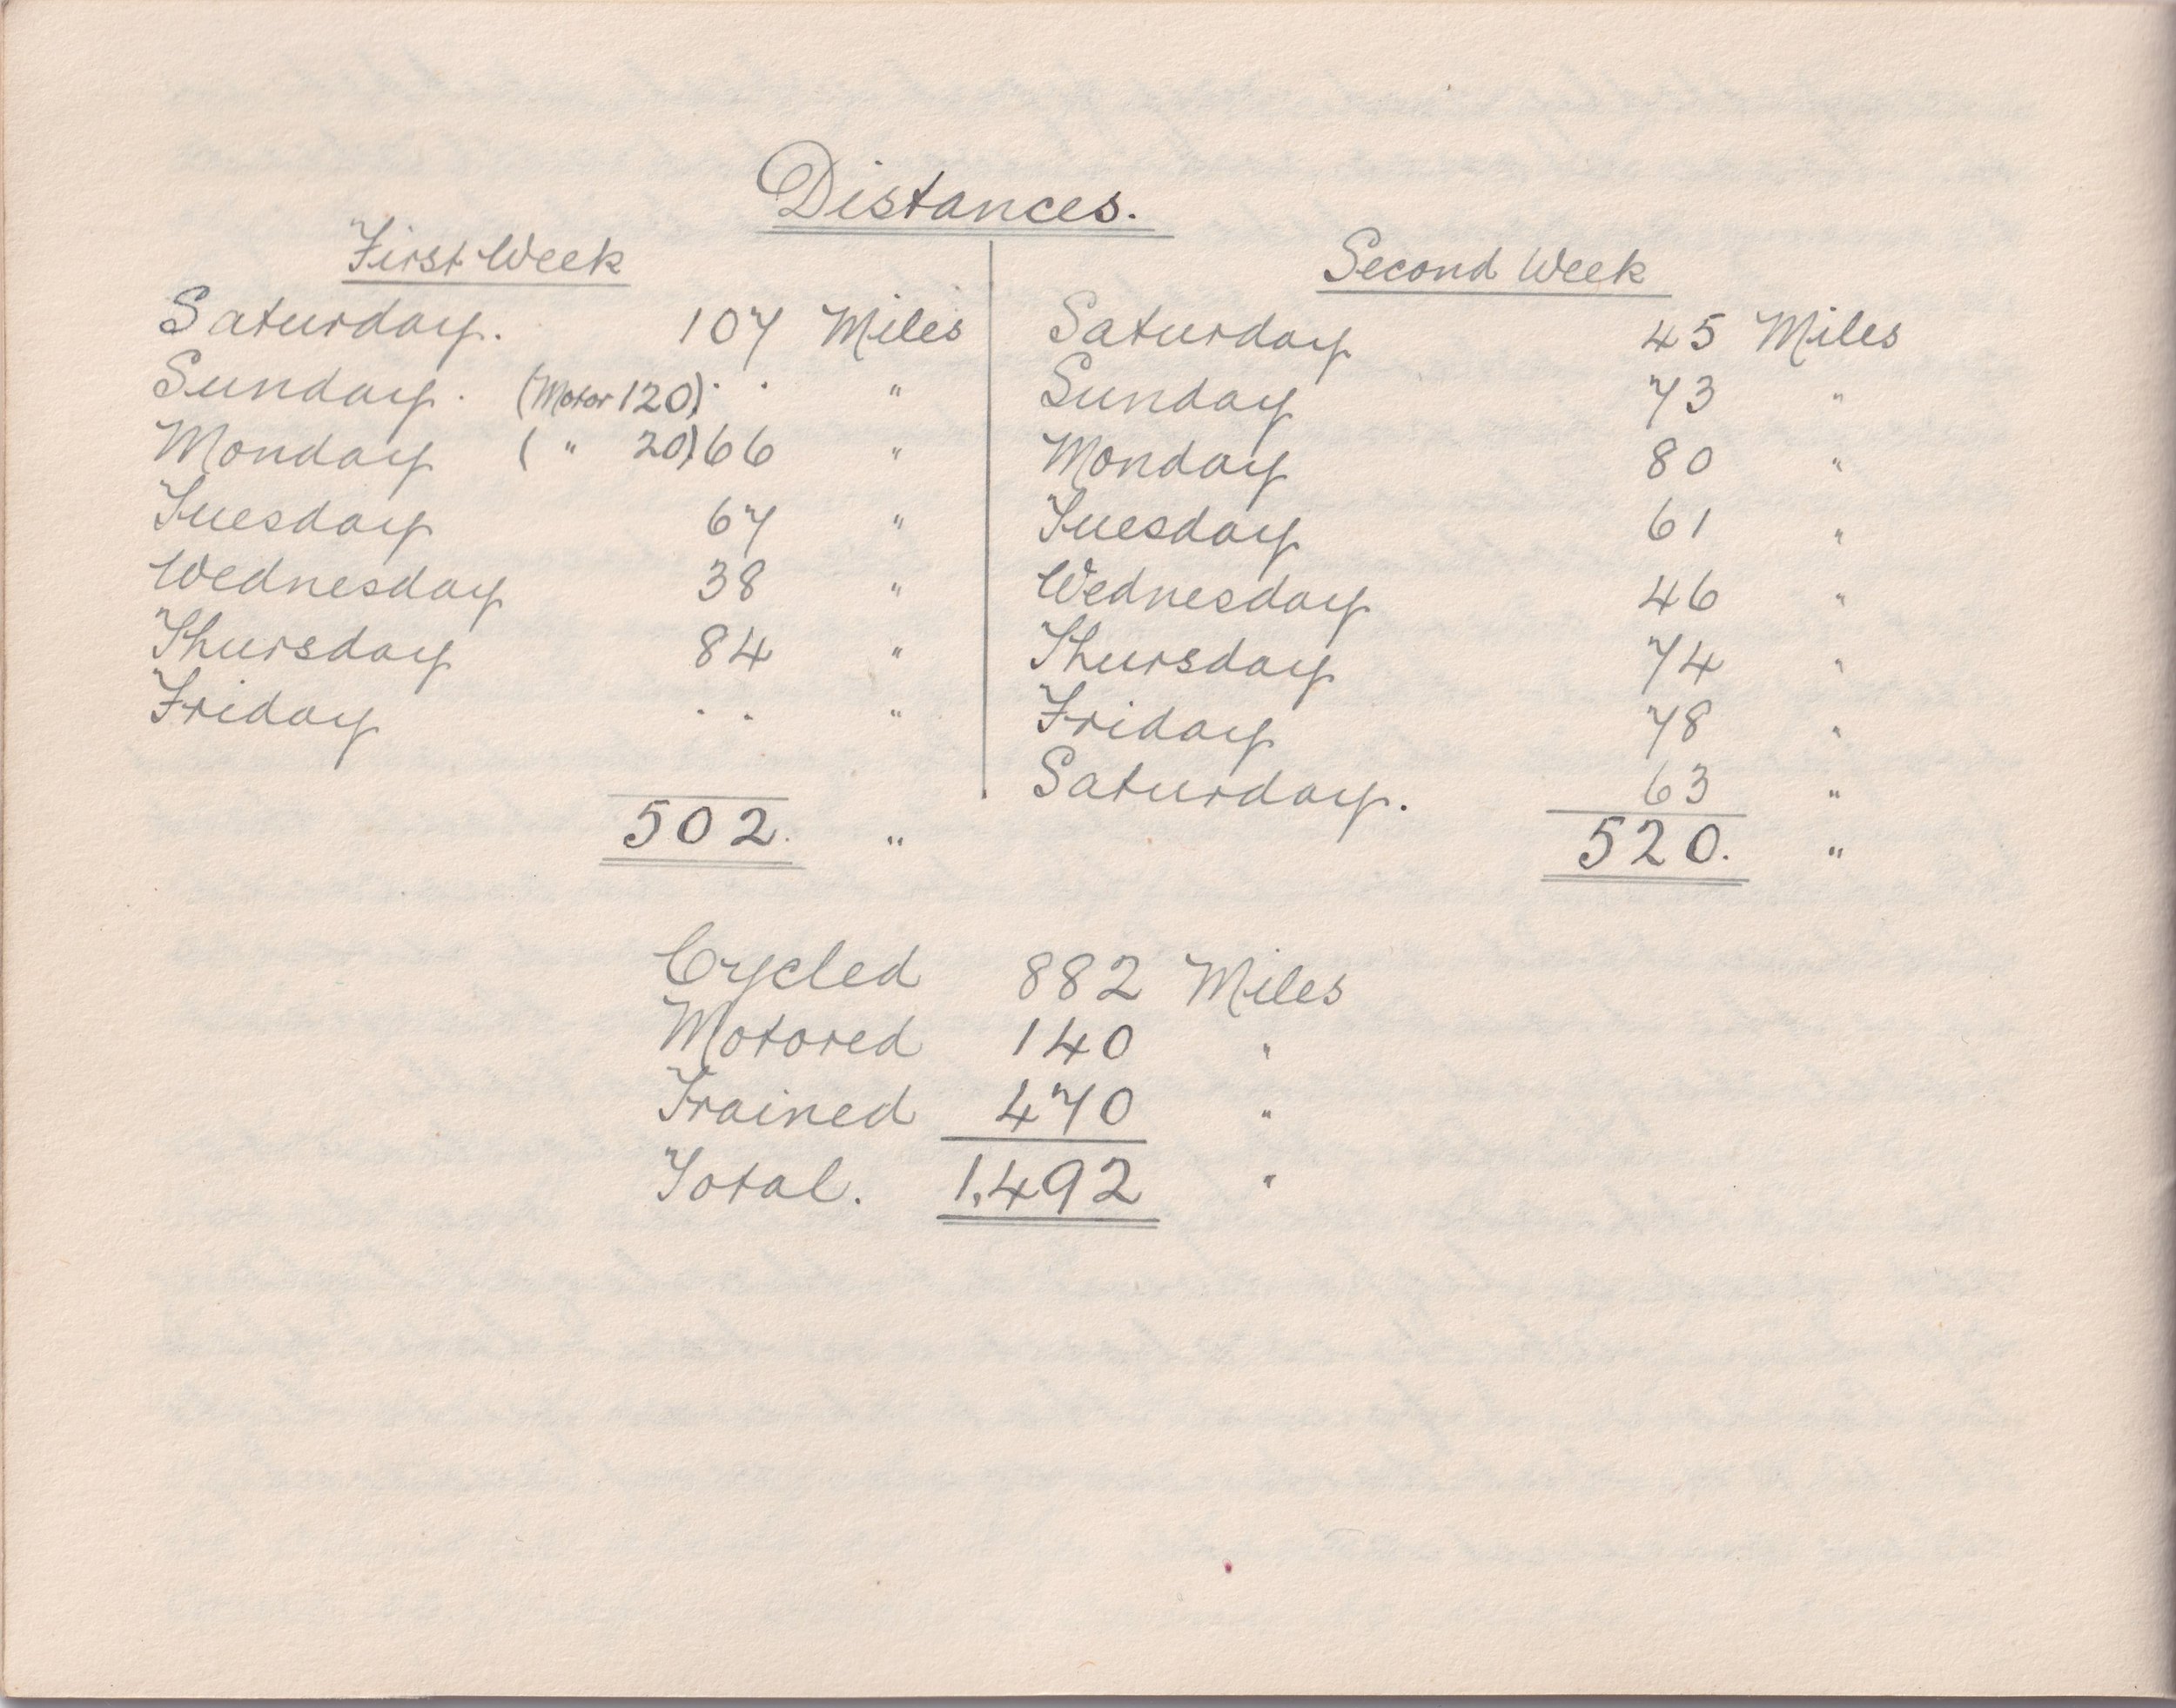 Distances.
First Week
Saturday. 107 Miles
Sunday. (Motor 120) . . "
Monday ( " 20) 66 "
Tuesday 67 "
Wednesday 38 "
Thursday 84 "
Friday . . "
502. "
Second Week
Saturday 45 Miles
Sunday 73 "
Monday 80 "
Tuesday 61 "
Wednesday 46 "
Thursday 74 "
Friday 78 "
Saturday. 63 "
520. "
Cycled 882 Miles
Motored 140 "
Trained 470 "
Total. 1,492 "